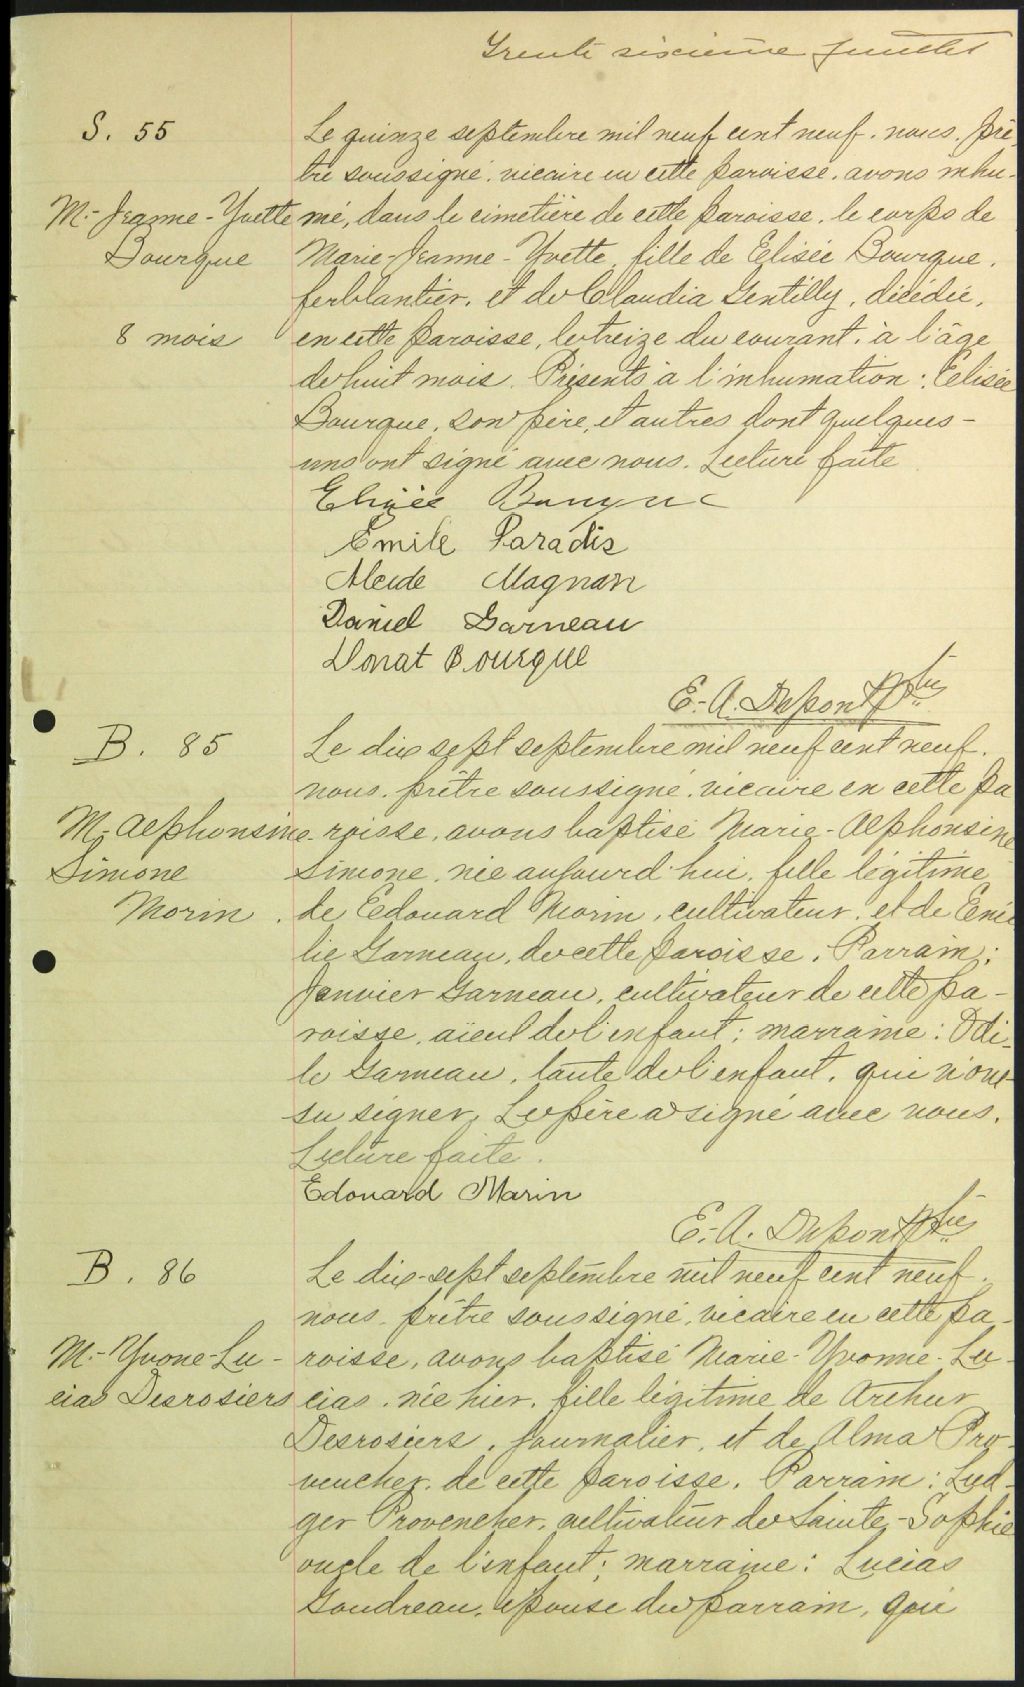 Trente sixième feuillet
S. 55
M.-Jeanne-Yvette
Bourque
8 mois
Le quinze septembre mil neuf cent neuf. nous. prê-
tre soussigné. vicaire en cette paroisse. avons inhu-
mé, dans le cimetière de cette paroisse. le corps de
Marie-Jeanne-Yvette, fille de Elisée Bourque.
ferblantier. et de Claudia Gentilly, décédée,
en cette paroisse, le treize du courant. à l'âge
de huit mois. Présents à l'inhumation: Elisée
Bourque, son père, et autres dont quelques-
uns ont signé avec nous. Lecture faite
Elisée Bourque
Emile Paradis
Alcide Magnan
Daniel Garneau
Donat Bourque
E.-A. Dupont Ptre
B. 85
M.-Alphonsine
Simone
Morin
Le dix sept septembre mil neuf cent neuf.
nous. prêtre soussigné. vicaire en cette pa
roisse, avons baptisé Marie-Alphonsine
Simone, née aujourd'hui. fille légitime
de Edouard Morin, cultivateur. et de Emé
lie Garneau, de cette paroisse. Parrain:
Janvier Garneau, cultivateur de cette pa-
roisse, aïeul de l'enfant; marraine: Odi-
le Garneau, tante de l'enfant, qui n'ont
su signer. Le père a signé avec nous.
Lecture faite.
Edouard Marin
E.-A. Dupont Ptre
B. 86
M.-Yvone-Lu-
cias Desrosiers
Le dix-sept septembre mil neuf cent neuf.
nous. prêtre soussigné, vicaire en cette pa-
roisse, avons baptisé Marie-Yvonne-Lu-
cias. née hier. fille légitime de Arthur
Desrosiers, journalier, et de Alma Pro-
vencher. de cette paroisse. Parrain: Lud-
ger Provencher, cultivateur de Sainte-Sophie
oncle de l'enfant; marraine: Lucias
Goudreau, épouse du parrain, qui